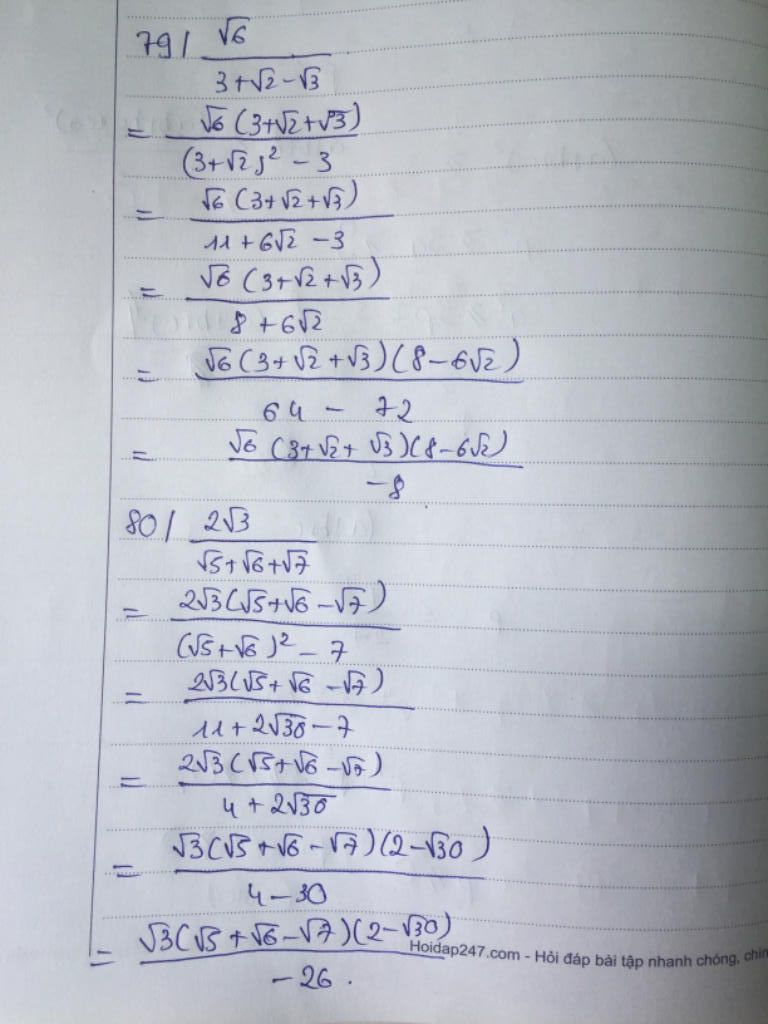 79/ √6
3+√2-√3
= √6 (3+√2+√3)
(3+√2)² - 3
= √6 (3+√2+√3)
11+6√2 -3
= √6 (3+√2+√3)
8+6√2
= √6(3+√2+√3)(8-6√2)
64 - 72
= √6 (3+√2+√3)(8-6√2)
-8
80/ 2√3
√5+√6+√7
= 2√3(√5+√6-√7)
(√5+√6)² - 7
= 2√3(√5+√6-√7)
11+2√30-7
= 2√3(√5+√6-√7)
4+2√30
= √3(√5+√6-√7)(2-√30)
4-30
= √3(√5+√6-√7)(2-√30)
-26.
Hoidap247.com - Hỏi đáp bài tập nhanh chóng, chín